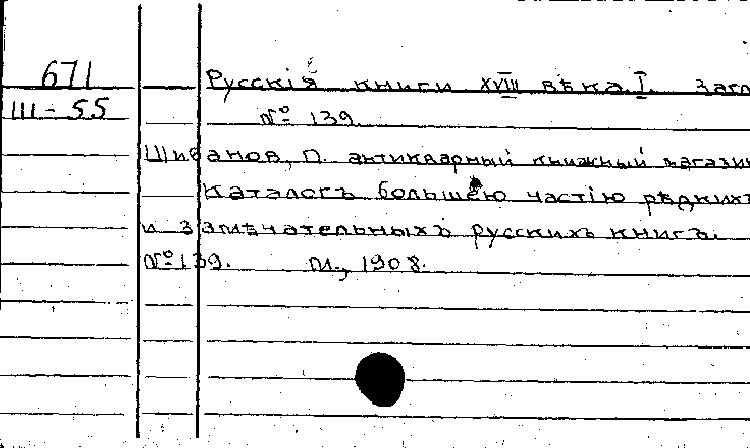 671
III-55
Русскія книги XVIII вѣка. I. Загл
№ 139.
Шибанов, П. антикварный книжный магазин
Каталогъ большею частію рѣдкихъ
и замѣчательныхъ русскихъ книгъ.
№ 139. М., 1908.